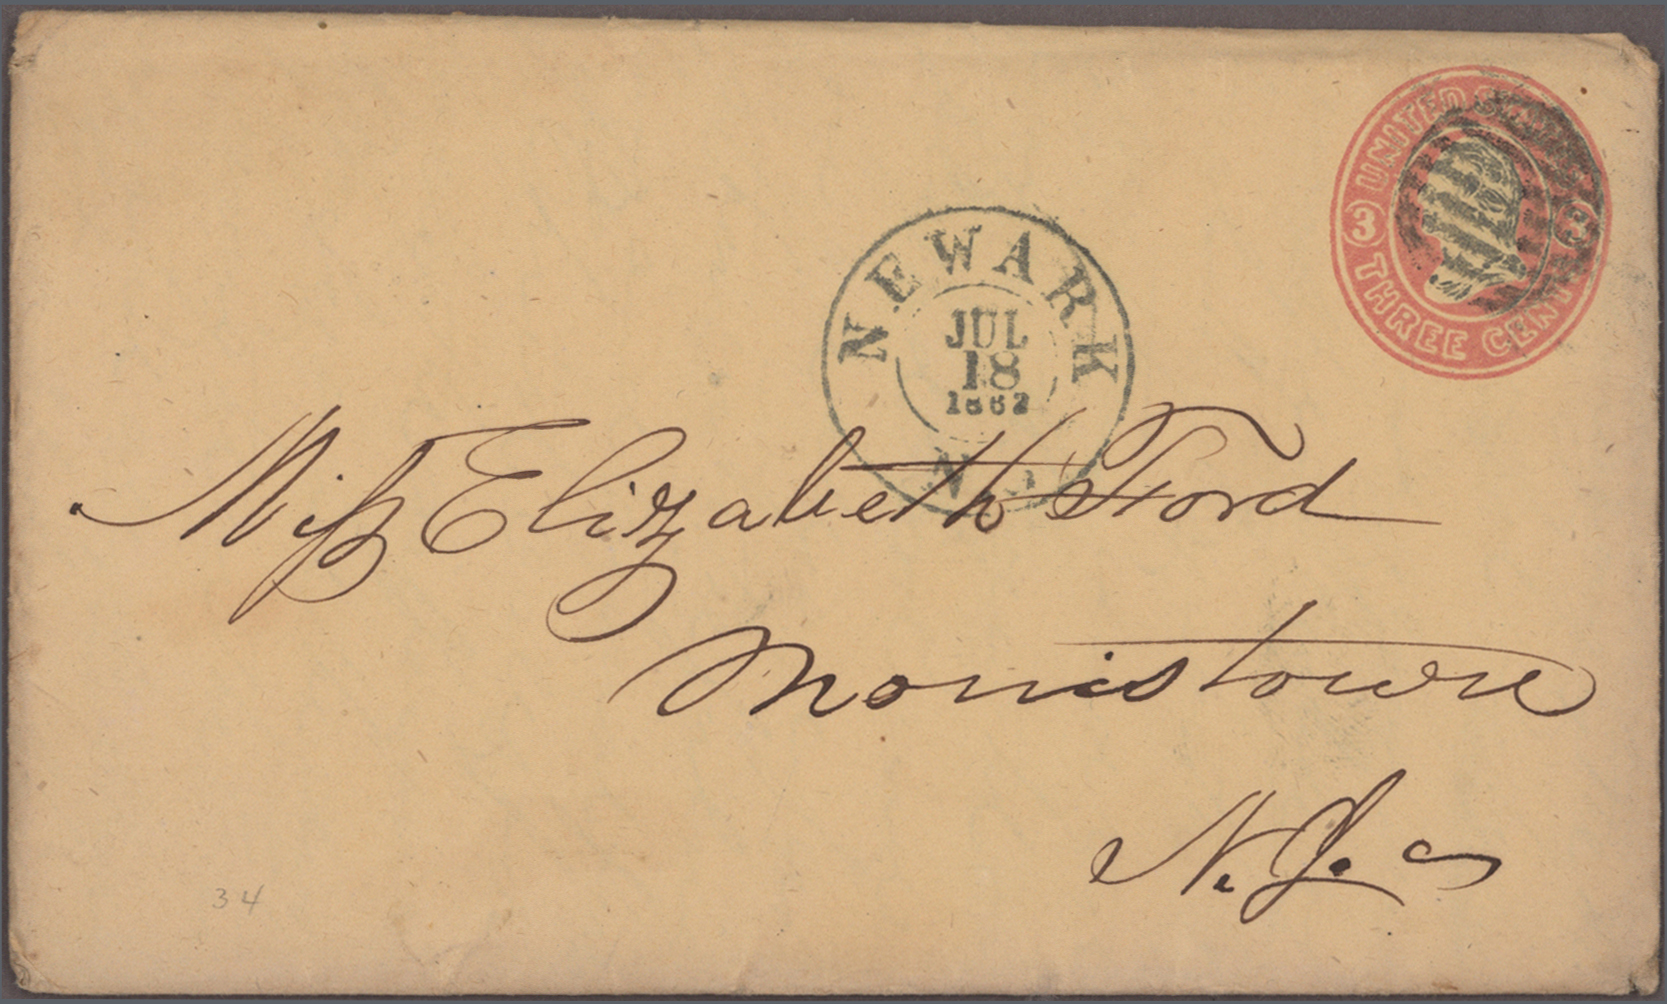 UNITED
3
THREE CENT
NEWARK
JUL
18
1862
N
Miss Elizabeth Ford
Morristown
N. J.
34